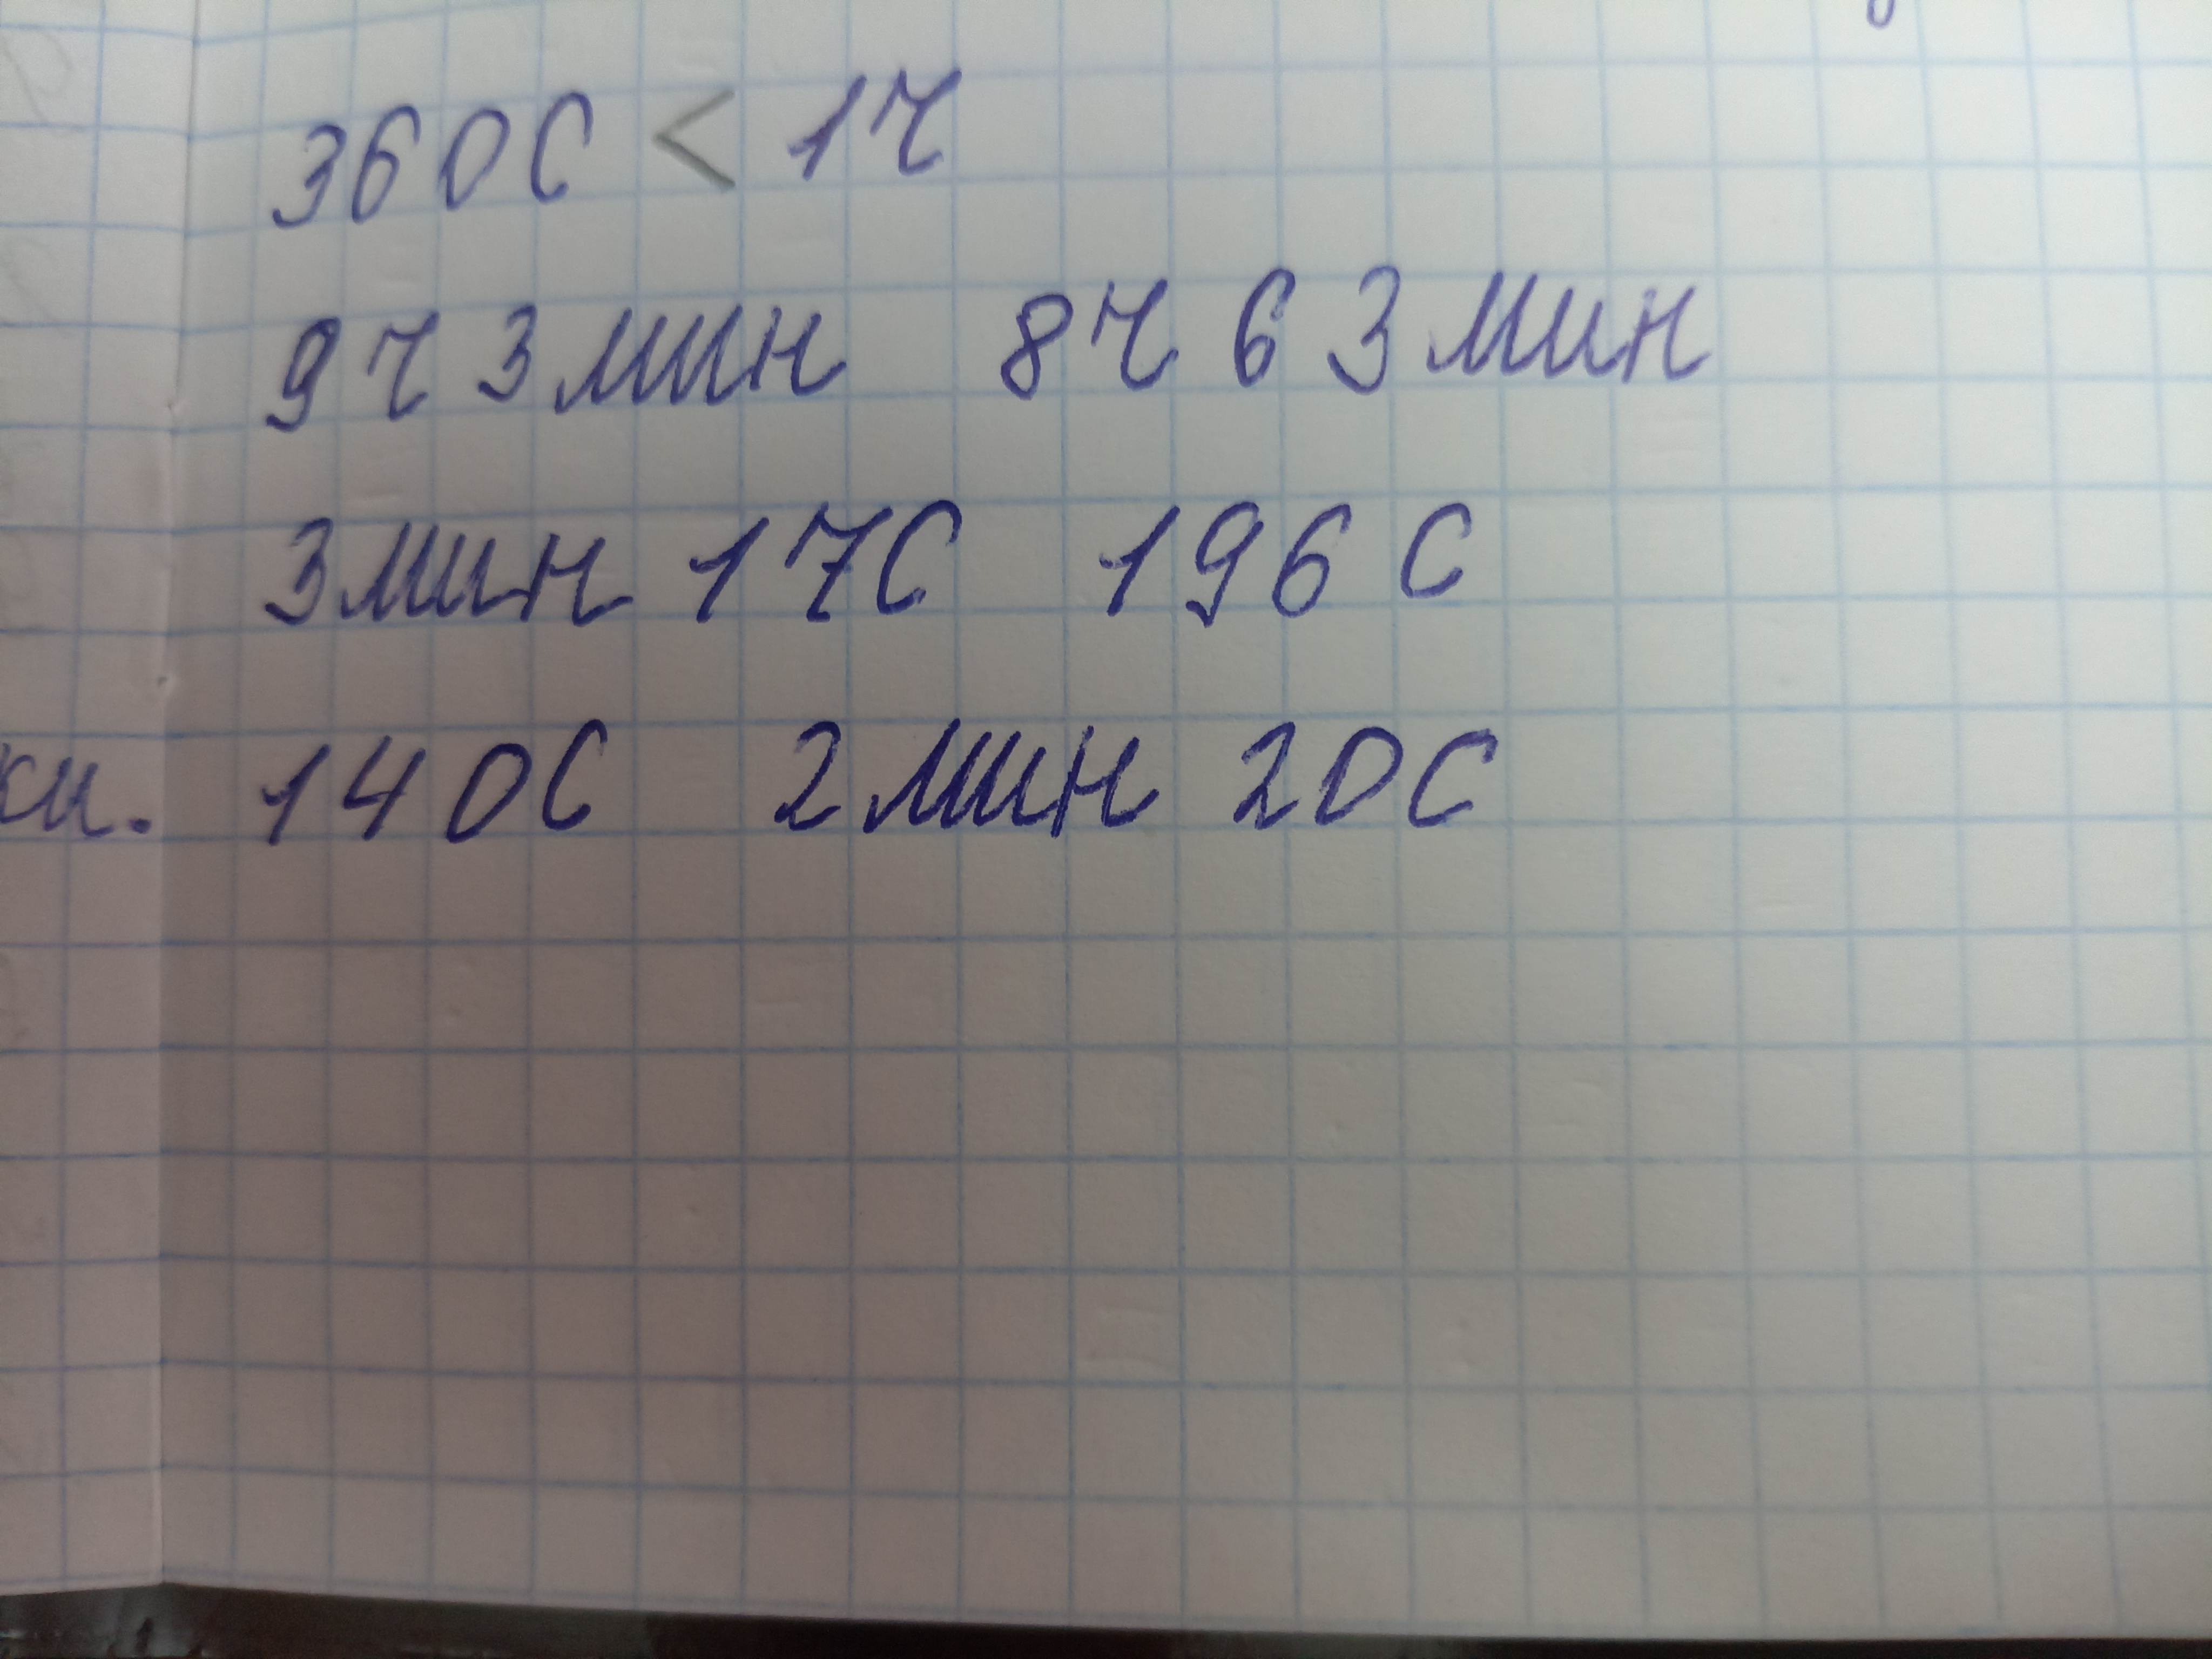 360с < 1ч
9ч 3мин 8ч 63мин
3мин 17с 196с
ки. 140с 2мин 20с